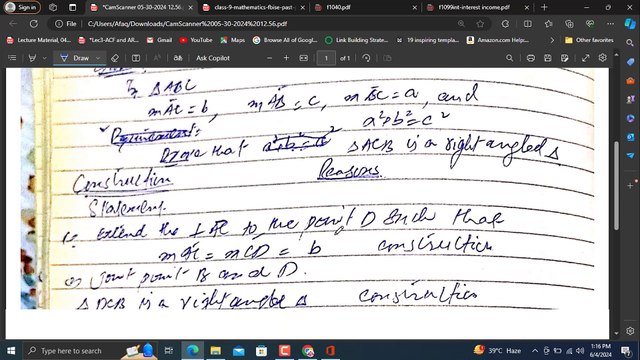 Sign in
*CamScanner 05-30-2024 12.56.pdf
class-9-mathematics-fbise-past-
f1040.pdf
f1099int-interest income.pdf
File
C:/Users/Afaq/Downloads/CamScanner%2005-30-2024%2012.56.pdf
Lecture Material, 04...
*Lec3-ACF and AR...
YouTube
Maps
Browse All of Googl...
Link Building Statist...
19 inspiring templat...
Amazon.com Help:...
Other favorites
Draw
Ask Copilot
1 of 1
Δ ABC
mAC = b, mAB = c, mBC = a, and
a² + b² = c²
Prove that a² + b² = c² Δ ACB is a right angled Δ
Construction Reasons
Statement
Extend the AC to the point D such that
mAC = mCD = b construction
Joint point B and D.
Δ DCB is a right angle Δ construction
Type here to search
39°C Haze
1:16 PM
6/4/2024